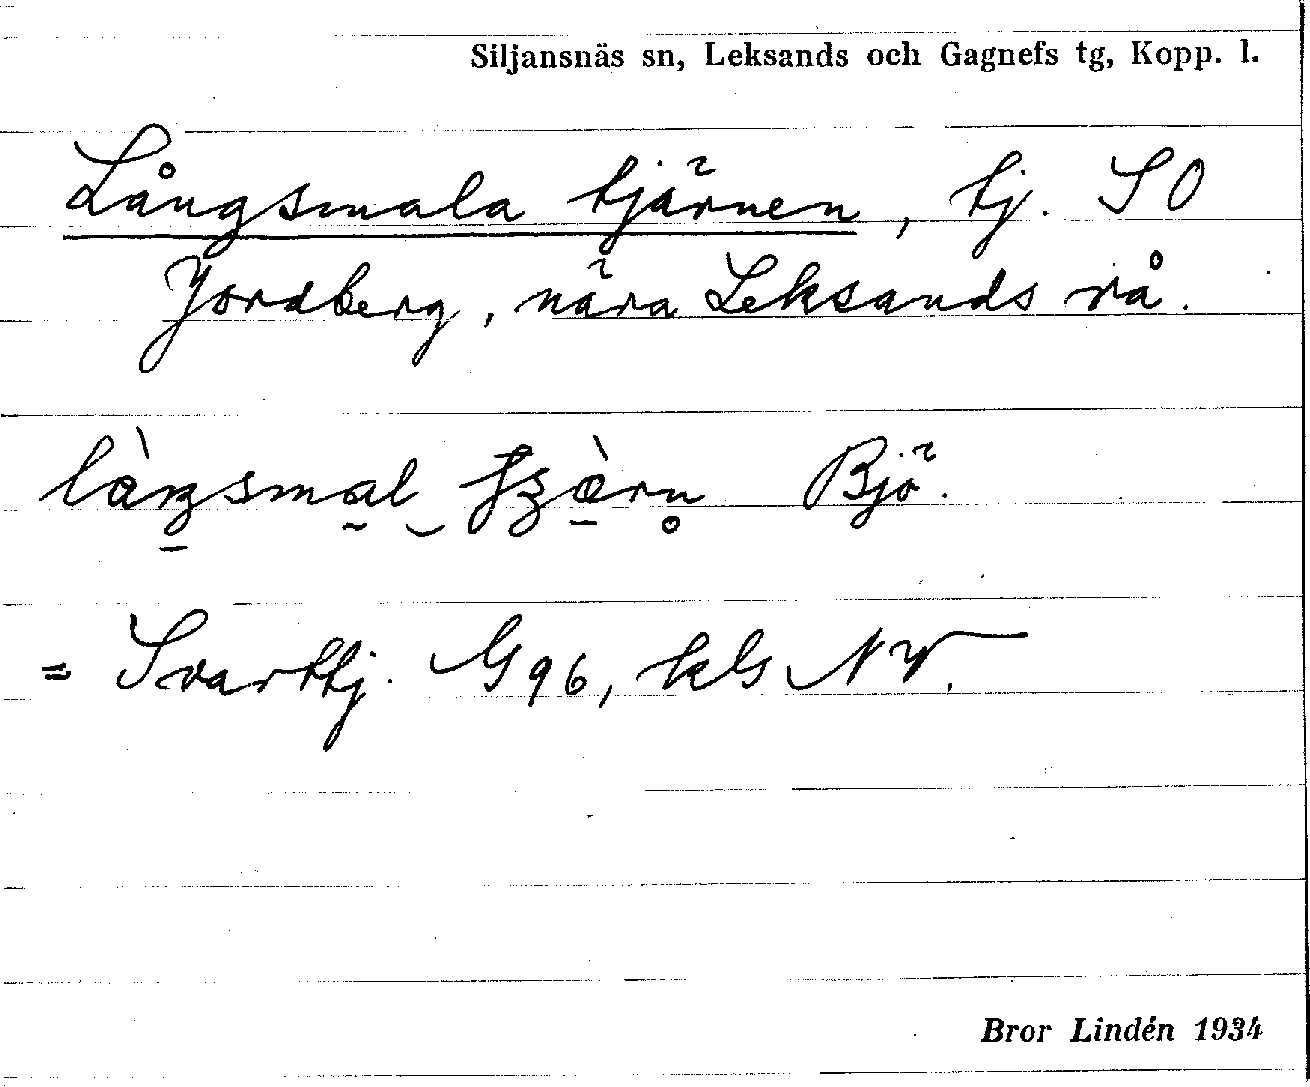 Siljansnäs sn, Leksands och Gagnefs tg, Kopp. l.
Långsmala tjärnen, tj. SO
Jordberg, nära Leksands rå.
Bjö.
= Svarttj. G96, kls NV.
Bror Lindén 1934